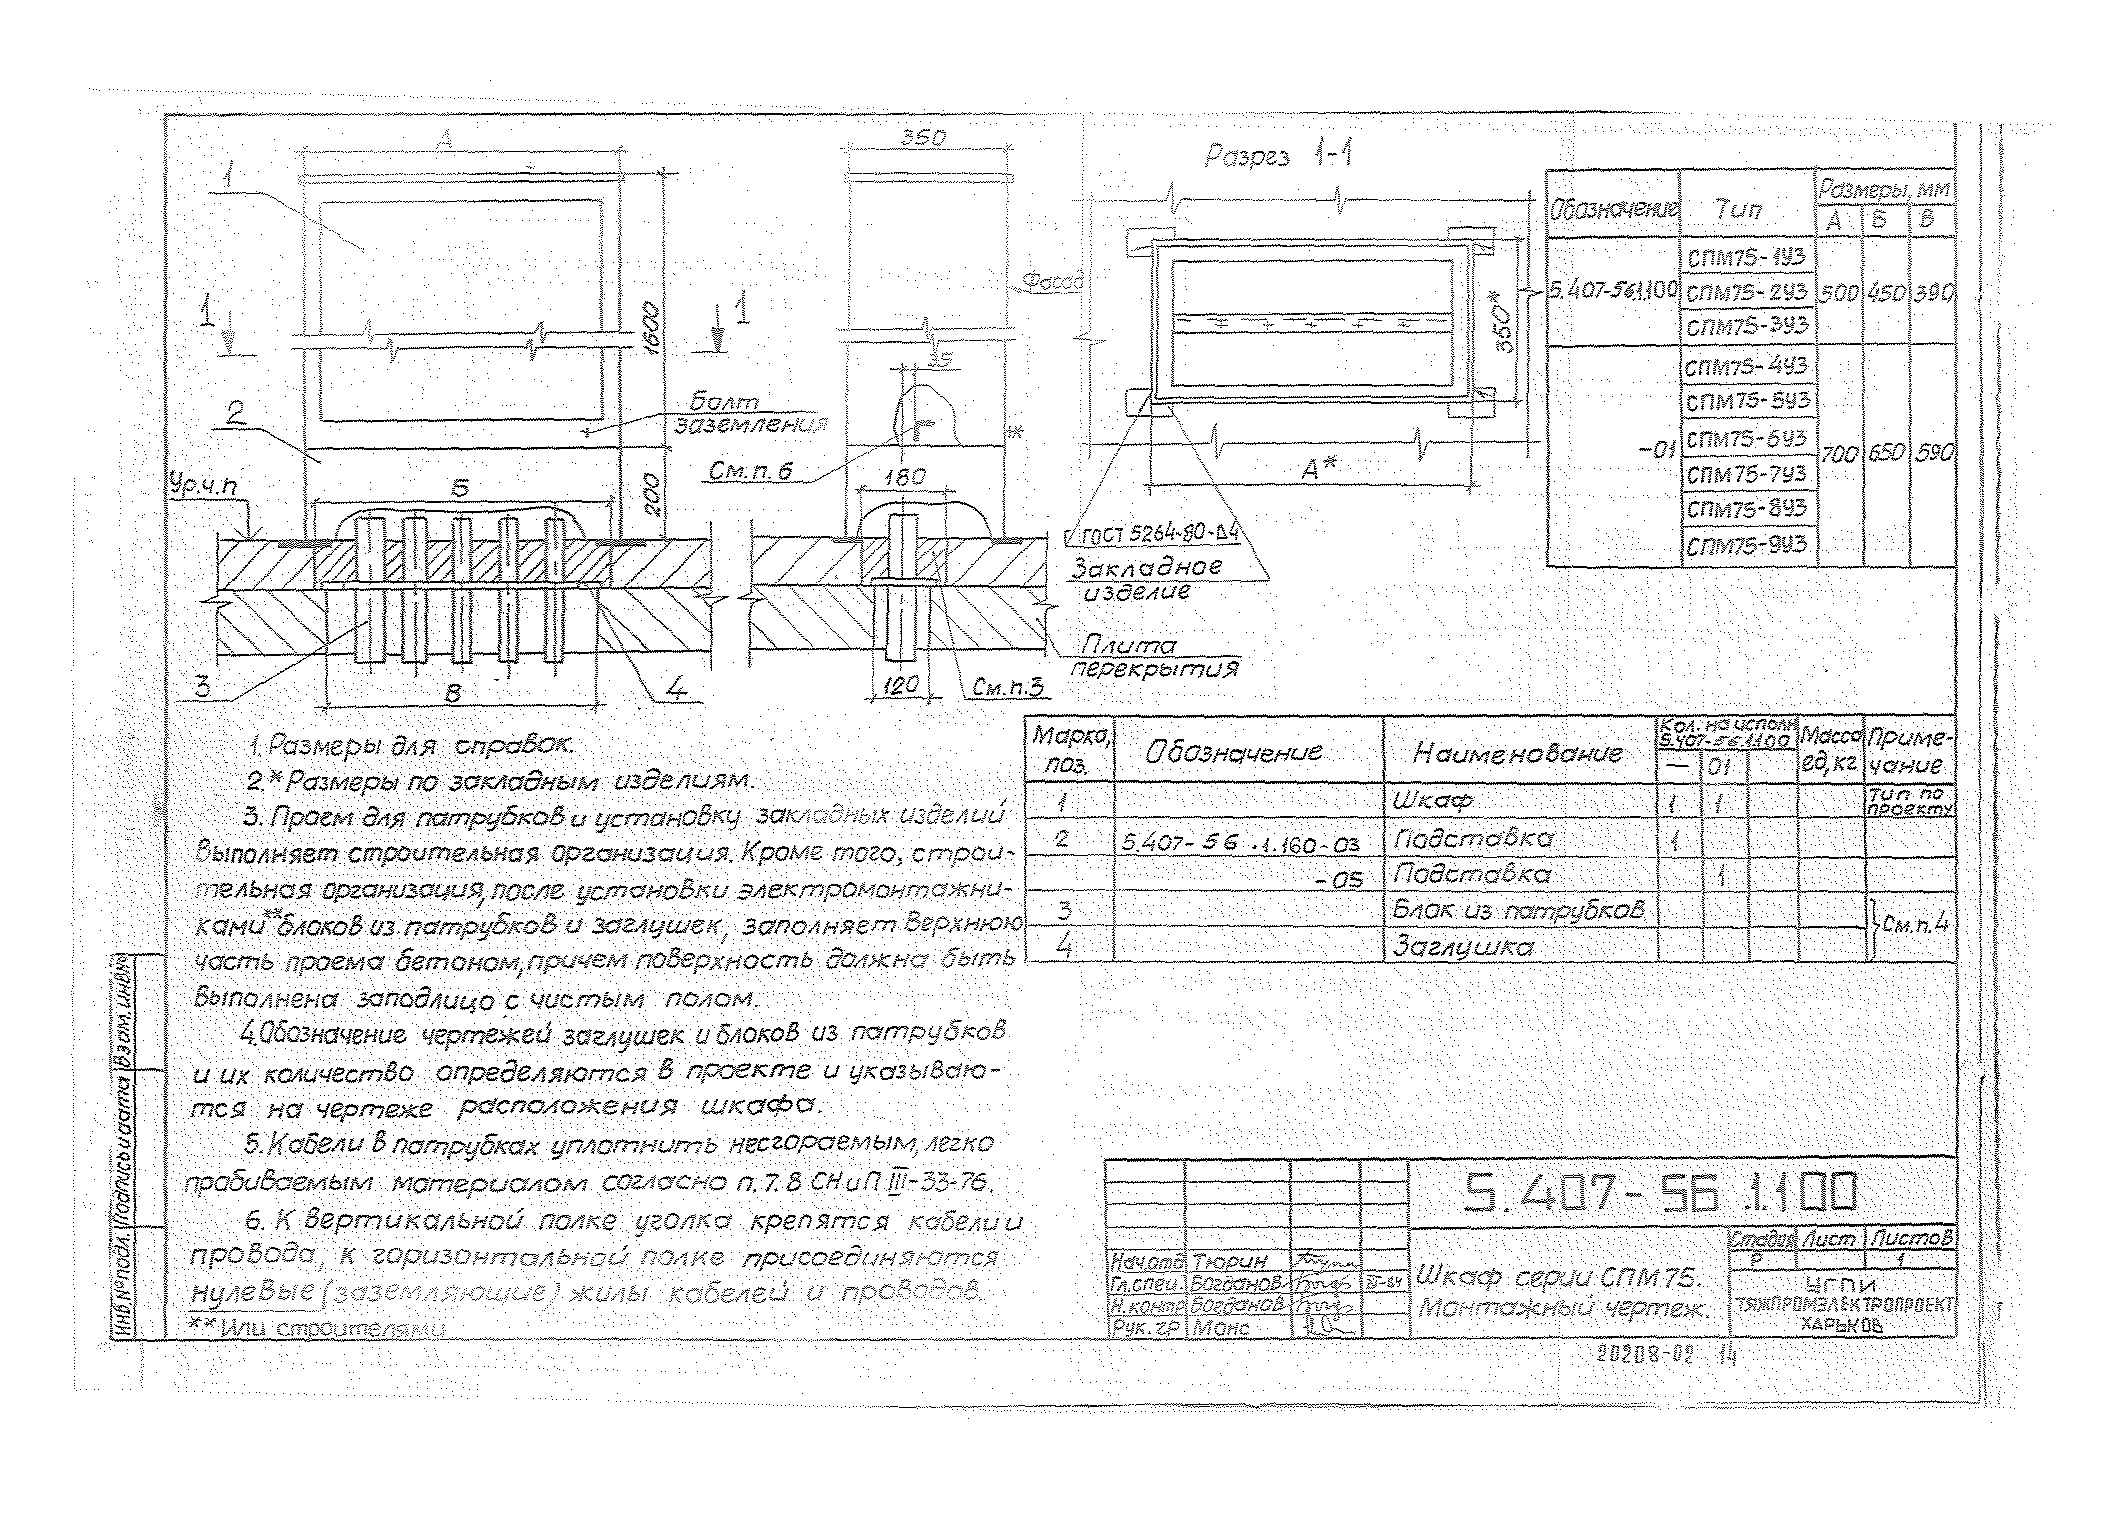 А
350
Разрез 1-1
1
1
1
1600
Фасад
35
350*
2
Болт
заземления
*
См.п.6
А*
Ур.ч.п
Б
180
200
ГОСТ 5264-80-Δ4
Закладное
изделие
Плита
перекрытия
3
В
4
120
См.п.3
Обозначение Тип Размеры, мм
А Б В
5.407-56.1.100 СПМ75-1У3 500 450 390
СПМ75-2У3
СПМ75-3У3
-01 СПМ75-4У3 700 650 590
СПМ75-5У3
СПМ75-6У3
СПМ75-7У3
СПМ75-8У3
СПМ75-9У3
1. Размеры для справок.
2.* Размеры по закладным изделиям.
3. Проем для патрубков и установку закладных изделий
выполняет строительная организация. Кроме того, строи-
тельная организация, после установки электромонтажни-
ками** блоков из патрубков и заглушек, заполняет верхнюю
часть проема бетоном, причем поверхность должна быть
выполнена заподлицо с чистым полом.
4. Обозначение чертежей заглушек и блоков из патрубков
и их количество определяются в проекте и указываю-
тся на чертеже расположения шкафа.
5. Кабели в патрубках уплотнить несгораемым, легко
пробиваемым материалом согласно п. 7.8 СНиП III-33-76.
6. К вертикальной полке уголка крепятся кабели и
провода, к горизонтальной полке присоединяются
нулевые (заземляющие) жилы кабелей и проводов.
** Или строителями
Марка, поз. Обозначение Наименование Кол. на исполн. 5.407-56.1.100 Масса ед, кг Приме-чание
— 01
1 Шкаф 1 1 Тип по проекту
2 5.407-56.1.160-03 Подставка 1
-05 Подставка 1
3 Блок из патрубков
См.п.4
4 Заглушка
5.407-56.1.100
Стадия Лист Листов
Р 1
Нач.отд Тюрин
Гл.спец. Богданов III-84
Н.контр Богданов
Рук. гр Монс
Шкаф серии СПМ75.
Монтажный чертеж.
УГПИ
ТЯЖПРОМЭЛЕКТРОПРОЕКТ
ХАРЬКОВ
20208-02 14
Инв.№ подл. Подпись и дата Взам. инв.№